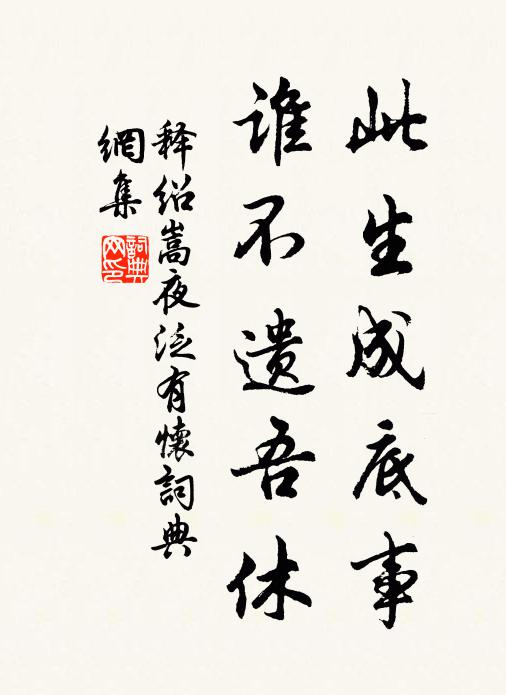 此生成底事
谁不遗吾休
释绍嵩夜泛有懷詞典
網集
詞典
网印